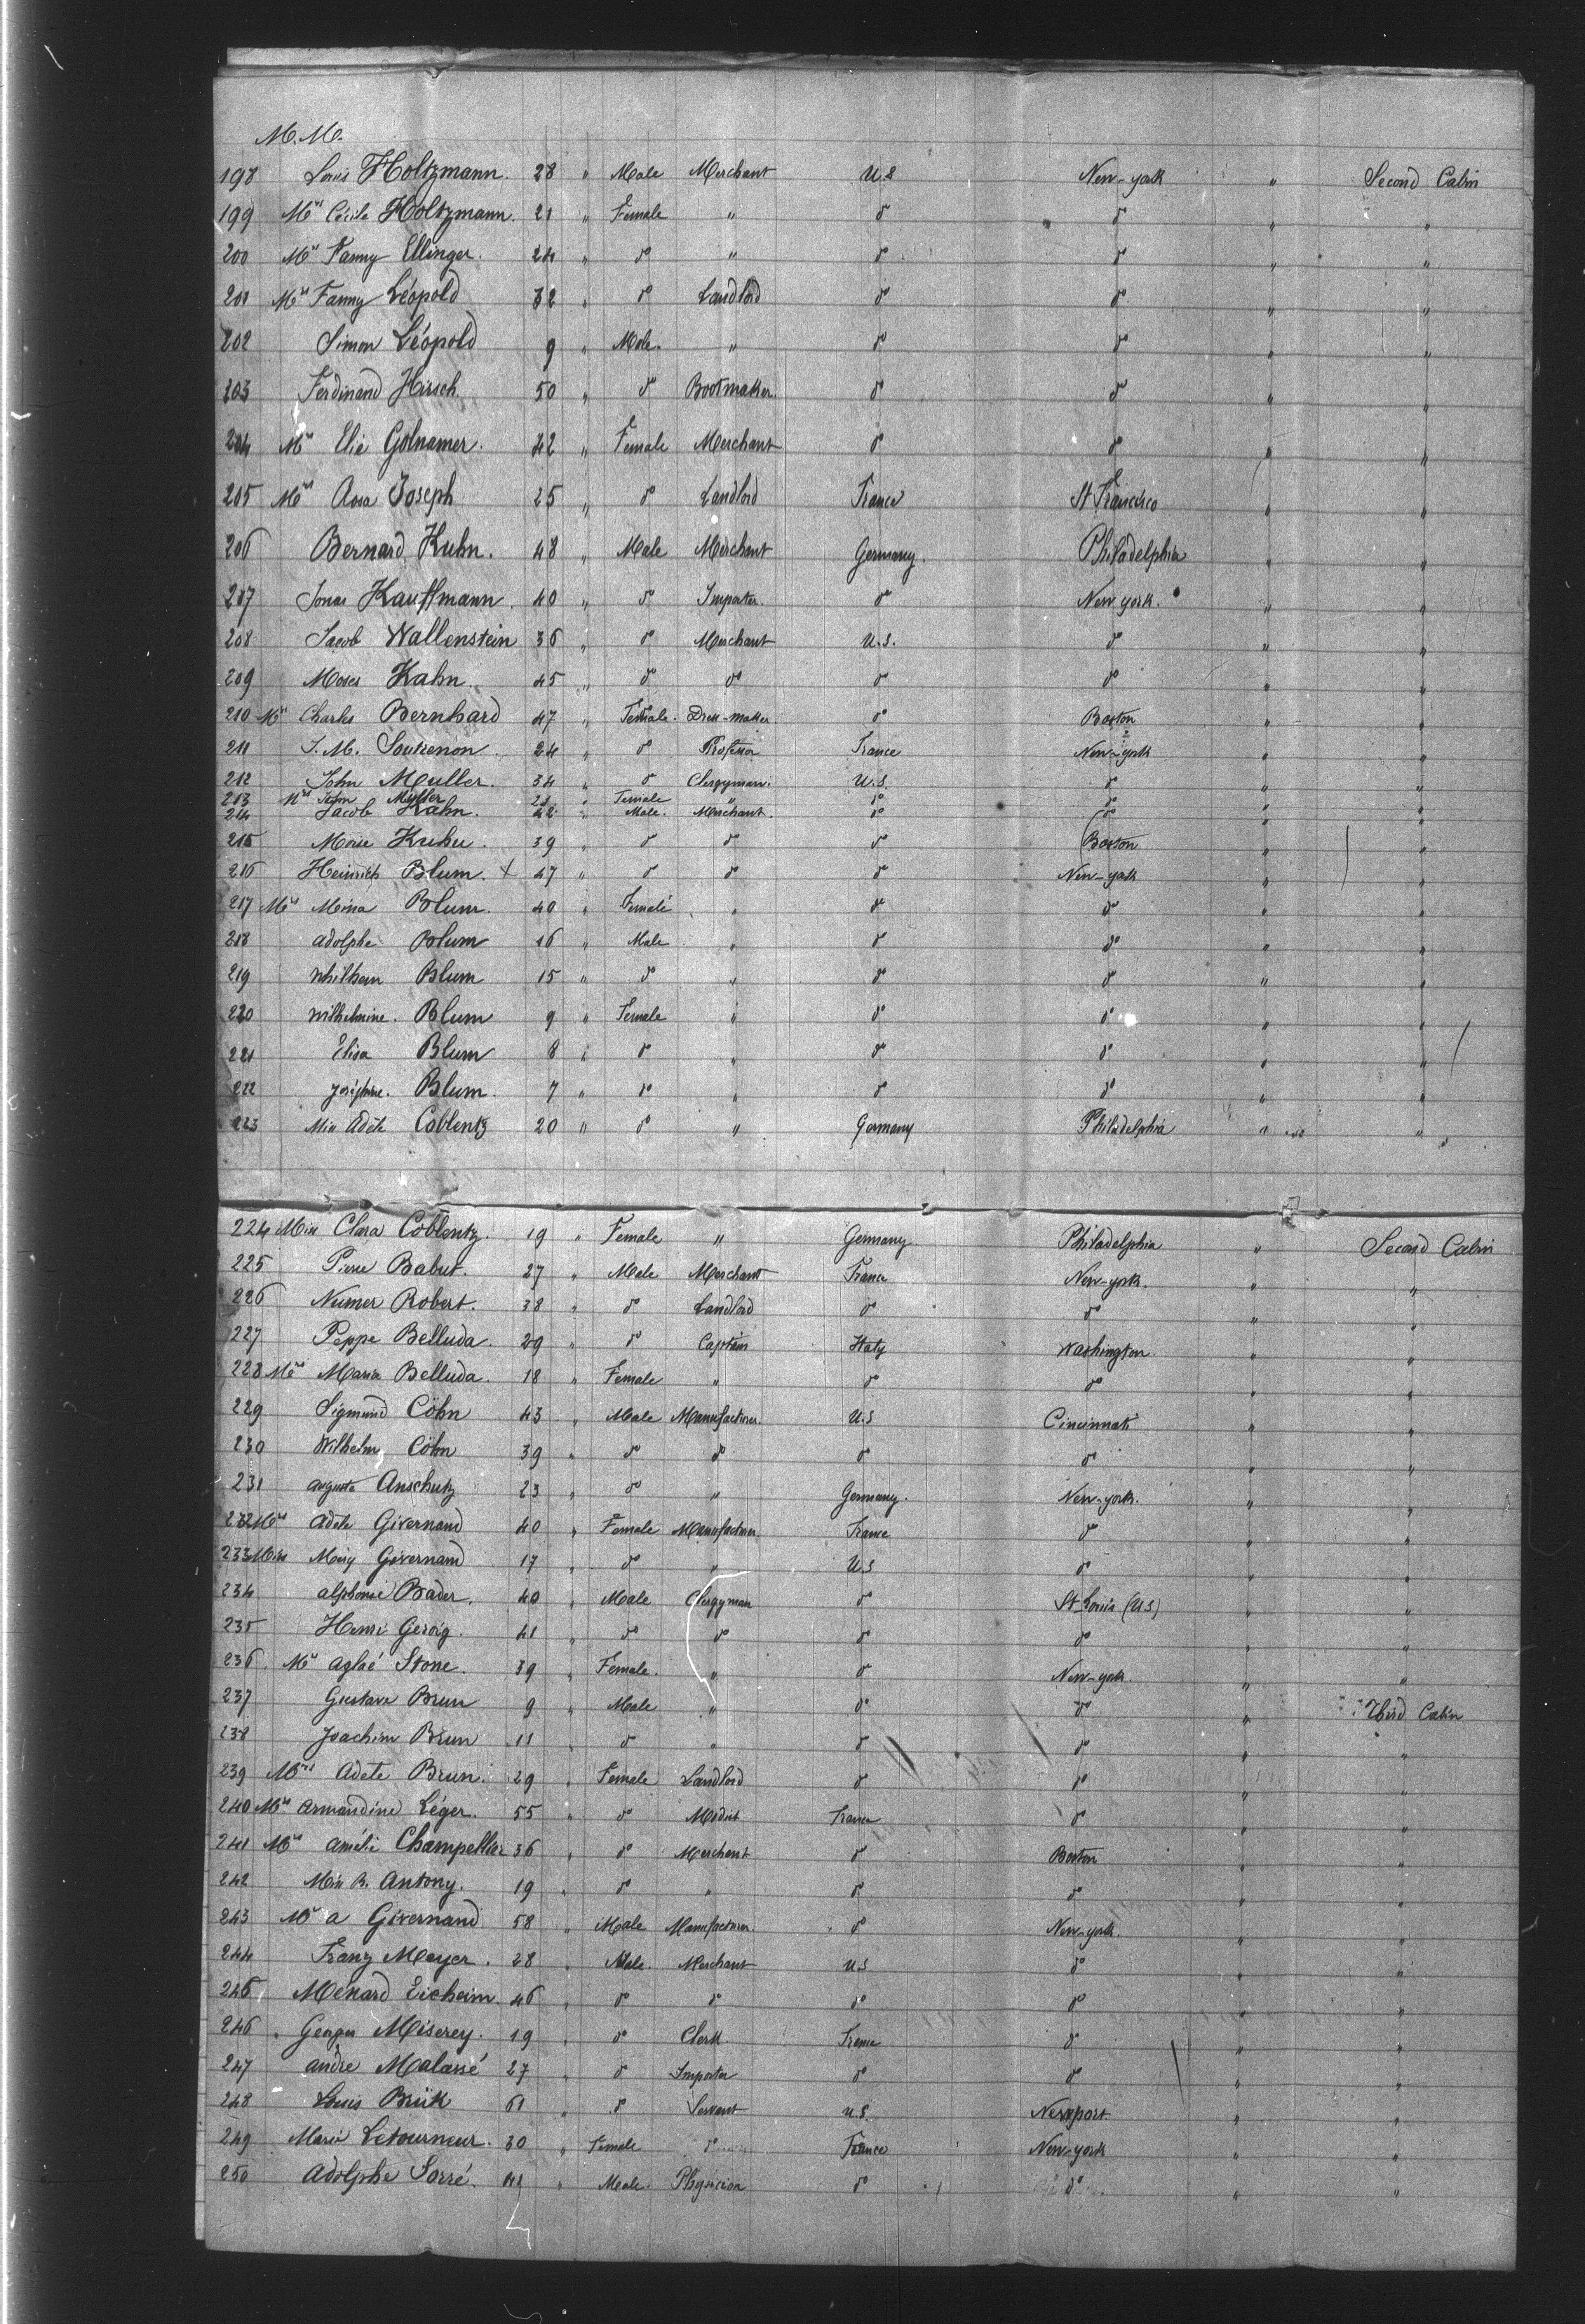 M. M.
198 Louis Holtzmann. 28 " Male Merchant U.S New-york " Second Cabin
199 Mrs Cécile Holtzmann. 21 " Female " do do " "
200 Mrs Fanny Ellinger. 24 " do " do do " "
201 Mrs Fanny Léopold 32 " do Landlord do do " "
202 Simon Léopold 9 " Male. " do do " "
203 Ferdinand Hirsch. 50 " do Bootmaker. do do " "
204 Mrs Elie Golnamer. 42 " Female Merchant do do " "
205 Mrs Rosa Joseph 25 " do Landlord France St Francisco " "
206 Bernard Kuhn. 48 " Male Merchant Germany. Philadelphia " "
207 Jonas Kauffmann. 40 " do Importer. do New york. " "
208 Jacob Wallenstein 36 " do Merchant U.S. do " "
209 Moses Kahn. 45 " do do do do " "
210 Mrs Charles Bernhard 47 " Female. Dress-maker do Boston " "
211 J. M. 24 " do Professor France New-york " "
212 John Muller. 34 " do Clergyman. U.S. do " "
213 Mrs John Müller " Female " do do " "
214 Jacob Kahn. 42 " Male. Merchant. do do " "
215 Moise Kuhn. 39 " do do do Boston " "
216 Heinrich Blum. + 47 " do do do New-york " "
217 Mrs Mina Blum. 40 " Female " do do " "
218 adolphe Blum 16 " Male " do do " "
219 Whilhem Blum 15 " do " do do " "
220 Wilhelmine. Blum 9 " Female " do do " "
221 Elisa Blum 8 " do " do do " "
222 Joséphine. Blum. 7 " do " do do " "
223 Miss Adèle Coblentz 20 " do " Germany Philadelphia " "
224 Miss Clara Coblentz. 19 " Female " Germany Philadelphia " Second Cabin
225 Pierre Babut. 27 " Male Merchant France New-york. " "
226 Numer Robert. 38 " do Landlord do do " "
227 Peppe Belluda. 29 " do Captain Italy Washington " "
228 Mrs Maria Belluda. 18 " Female " do do " "
229 Sigmund Cöhn 43 " Male Manufacturer. U.S Cincinnati " "
230 Wilhelm Cöhn 39 " do do do do " "
231 auguste Anschutz 23 " do " Germany. New-york. " "
232 Mrs Adele Givernand 40 " Female Manufacturer France do " "
233 Miss Mary Givernand 17 " do " U.S do " "
234 alphonse Bader. 40 " Male Clergyman do St Louis (US) " "
235 Henri Gervig. 41 " do do do do " "
236. Mrs aglaé Stone. 39 " Female. " do New-york. " "
237 Gustave Brun 9 " Male " do do " Third Cabin
238 Joachim Brun 11 " do " do do " "
239 Mrs Adele Brun. 29 " Female Landlord do do " "
240 Mrs Armandine Léger. 55 " do Modist France do " "
241 Mrs amélie Champellier 36 " do Merchant do Boston " "
242 Miss R. Antony. 19 " do " do do " "
243 Mr a Givernand 58 " Male Manufacturer. do New-york. " "
244 Franz Meyer. 28 " Male. Merchant U.S do " "
245 Ménard Eicheim. 46 " do do do do " "
246 Georges Miserey. 19 " do Clerk. France do " "
247 andre Malassé 27 " do Importer do do " "
248 Louis Brük 61 " do Servant U.S. Newport " "
249 Marie Letourneur. 30 " Female do France New-york " "
250 Adolphe Sorré. " Male. Physician do do " "